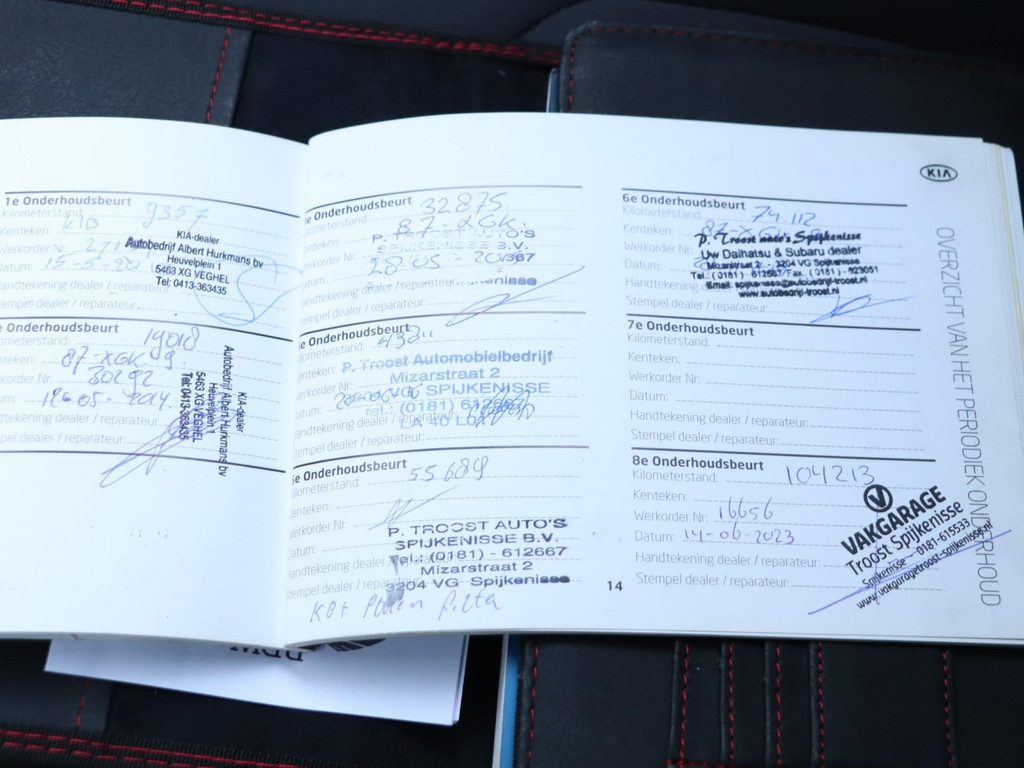 1e Onderhoudsbeurt
Kilometerstand: 9357
Kenteken: KIB
Werkorder Nr:
Datum: 15-5-20
Handtekening dealer / reparateur:
Stempel dealer / reparateur:
KIA-dealer
Autobedrijf Albert Hurkmans bv
Heuvelplein 1
5463 XG VEGHEL
Tel: 0413-363435
e Onderhoudsbeurt
ometerstand: 19018
nteken: 87-XGK-9
rkorder Nr: 30292
tum: 12-05-2014.
ndtekening dealer / reparateur:
mpel dealer / reparateur:
KIA-dealer
Autobedrijf Albert Hurkmans bv
Heuvelplein 1
5463 XG VEGHEL
Tel: 0413-363435
e Onderhoudsbeurt
Kilometerstand: 32875
Kenteken: 87-XGK.
P. TROOST AUTO'S
SPIJKENISSE B.V.
28-05-201
Handtekening
Stempel dealer / reparateur:
e Onderhoudsbeurt
ilometerstand:
enteken:
P. Troost Automobielbedrijf
Mizarstraat 2
SPIJKENISSE
Tel.: (0181) 612667
Handtekening dealer / reparateur:
tempel dealer / reparateur:
5e Onderhoudsbeurt
Kilometerstand: 55689
enteken:
Werkorder Nr:
atum:
andtekening dealer / reparateur:
Stempel dealer / reparateur:
P. TROOST AUTO'S
SPIJKENISSE B.V.
Tel.: (0181) - 612667
Mizarstraat 2
3204 VG Spijkenisse
14
KIA
6e Onderhoudsbeurt
Kilometerstand: 74.112
Kenteken: 87-XGK-9
Werkorder Nr:
Datum:
Handtekening
Stempel dealer / reparateur:
P. Troost auto's Spijkenisse
Uw Daihatsu & Subaru dealer
Mizarstraat 2 - 3204 VG Spijkenisse
Tel.: (0181) - 612667 Fax.: (0181) - 623051
Email: spijkenisse@autobedrijf-troost.nl
www.autobedrijf-troost.nl
7e Onderhoudsbeurt
Kilometerstand:
Kenteken:
Werkorder Nr:
Datum:
Handtekening dealer / reparateur:
Stempel dealer / reparateur:
8e Onderhoudsbeurt
Kilometerstand: 104213
Kenteken:
Werkorder Nr: 16656
Datum: 14-06-2023
Handtekening dealer / reparateur:
Stempel dealer / reparateur:
VAKGARAGE
Troost Spijkenisse
Spijkenisse - 0181-615533
www.vakgaragetroost-spijkenisse.nl
OVERZICHT VAN HET PERIODIEK ONDERHOUD